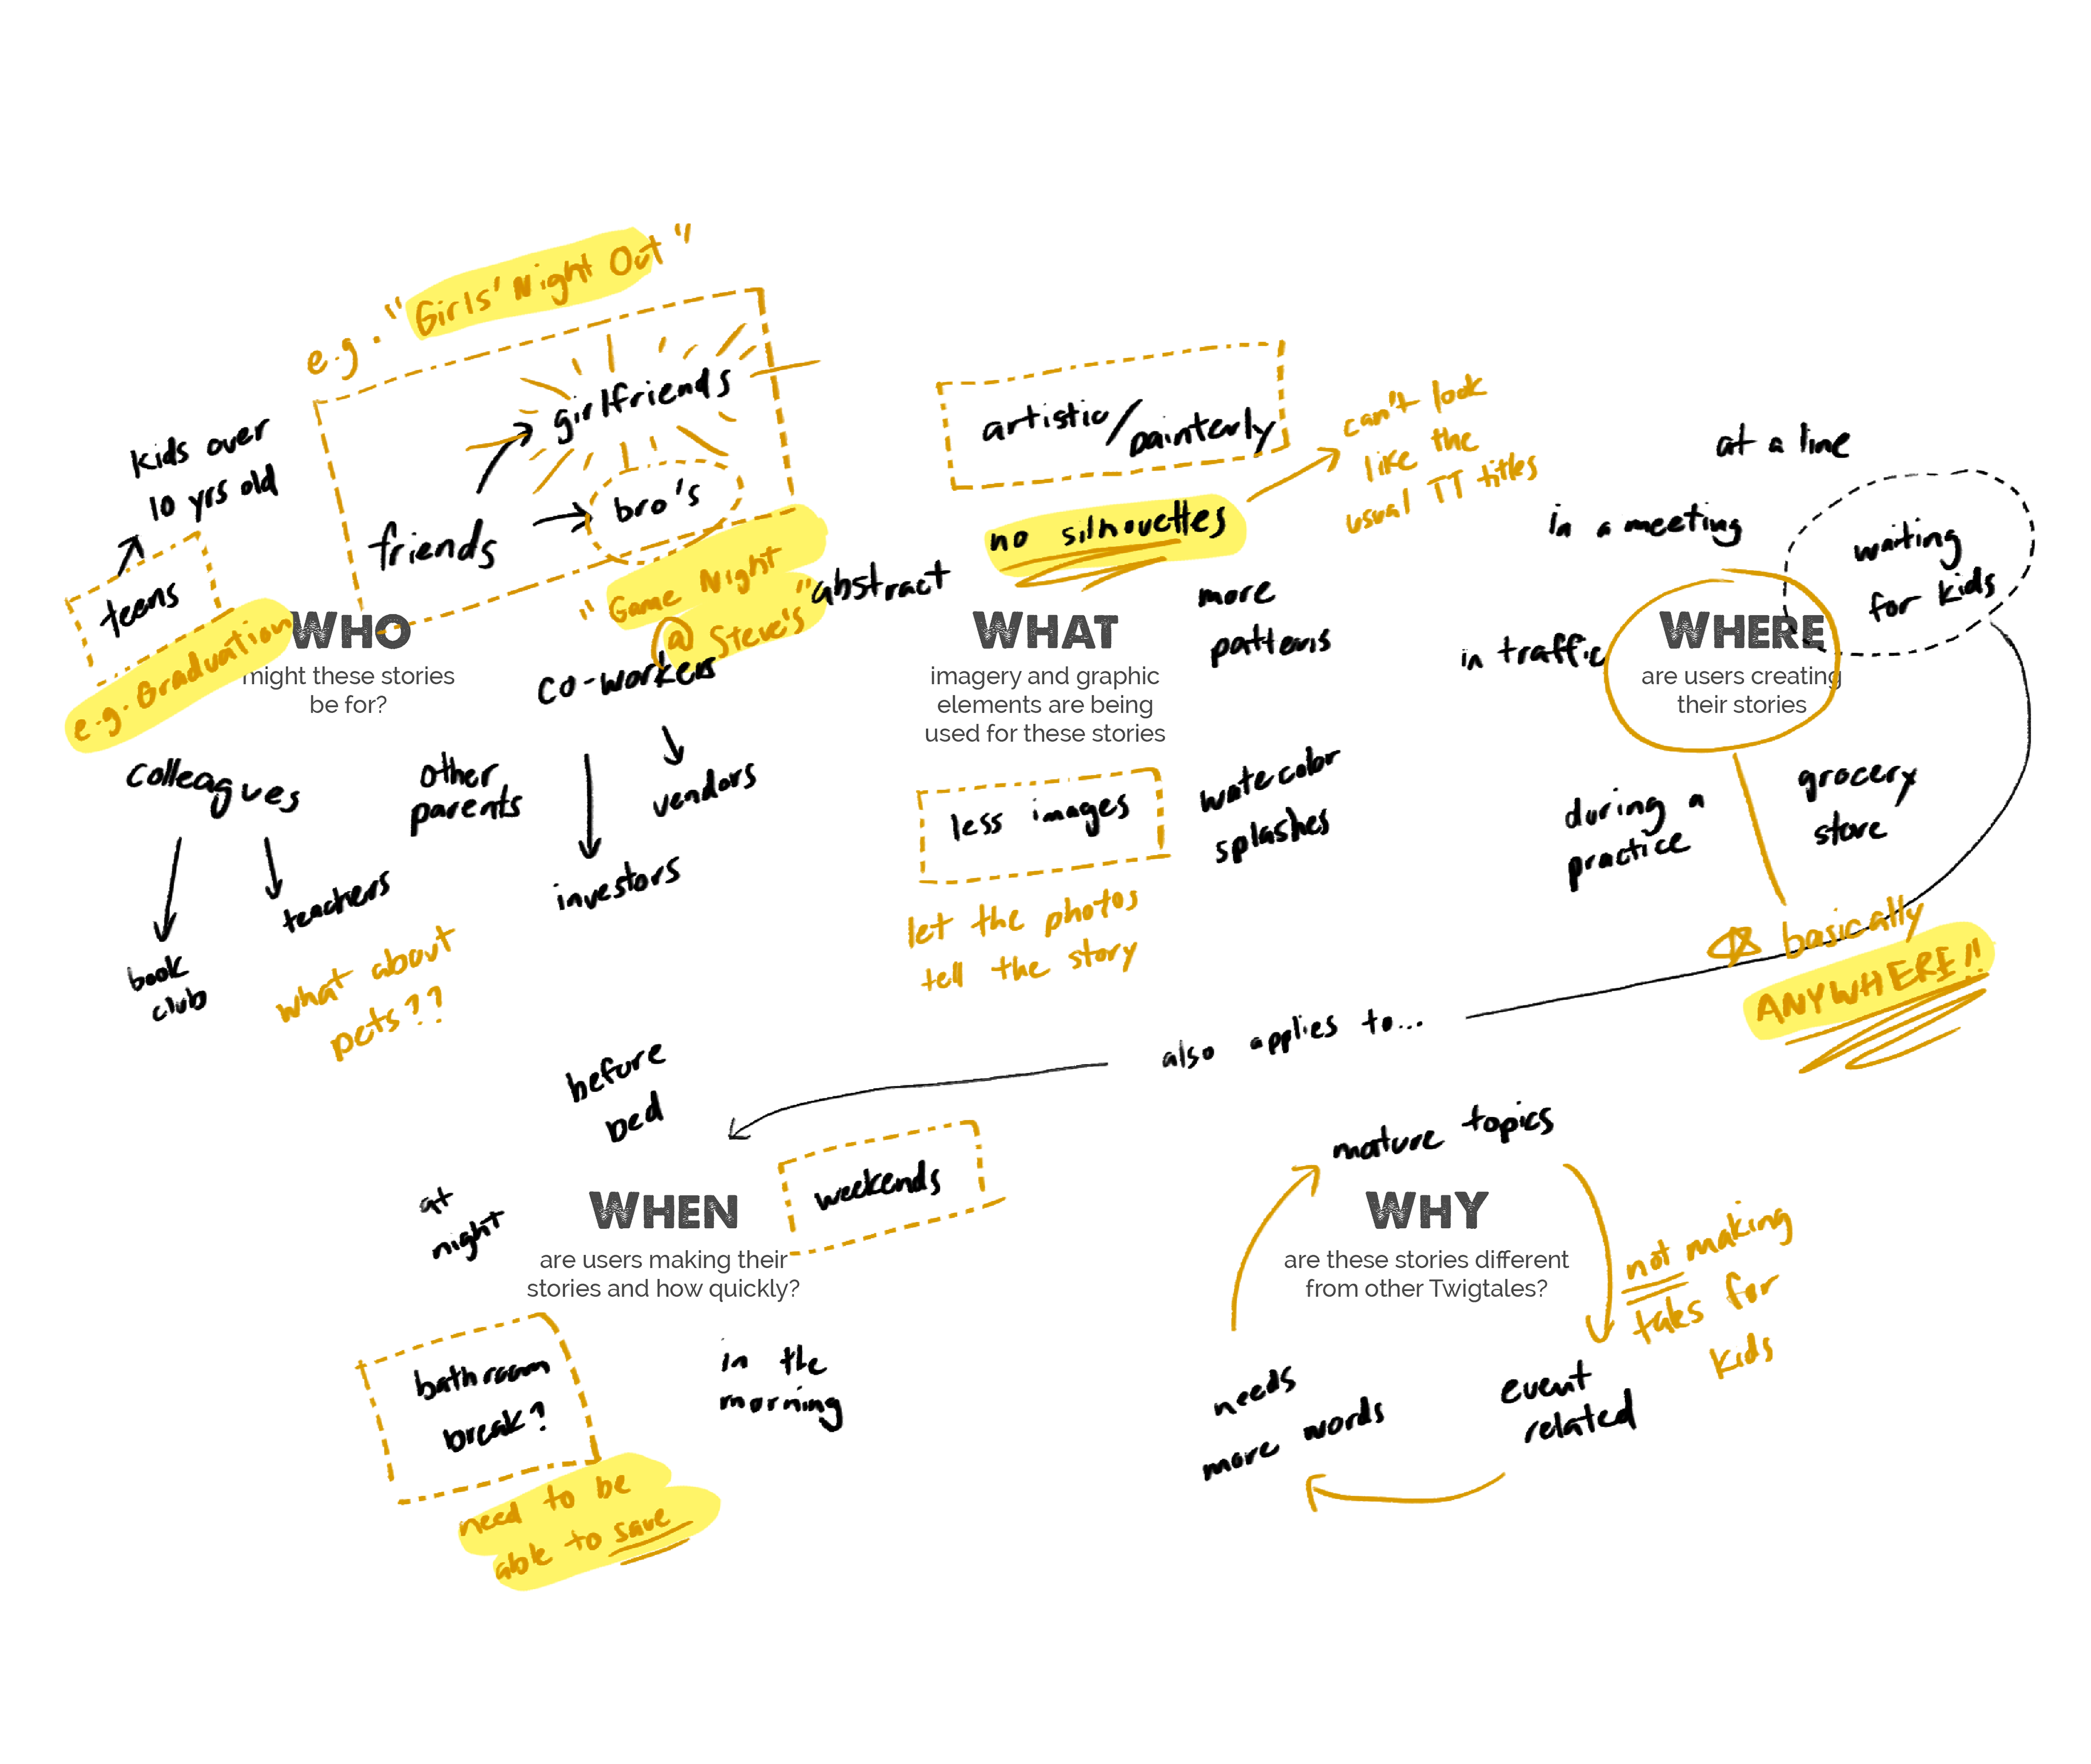 e.g. "Girls' Night Out"
girlfriends
bro's
friends
kids over
10 yrs old
teens
e.g. Graduation
"Game Night
@ Steve's"
WHO
might these stories
be for?
co-workers
vendors
investors
colleagues
book
club
teachers
other
parents
what about
pets??
artistic/painterly
no silhouettes
can't look
like the
usual TT titles
abstract
WHAT
imagery and graphic
elements are being
used for these stories
more
patterns
less images
let the photos
tell the story
watercolor
splashes
at a line
in a meeting
waiting
for kids
in traffic
WHERE
are users creating
their stories
during a
practice
grocery
store
basically
ANYWHERE!!
also applies to...
before
bed
weekends
at
night
WHEN
are users making their
stories and how quickly?
bathroom
break?
need to be
able to save
in the
morning
mature topics
WHY
are these stories different
from other Twigtales?
not making
tales for
kids
event
related
needs
more words